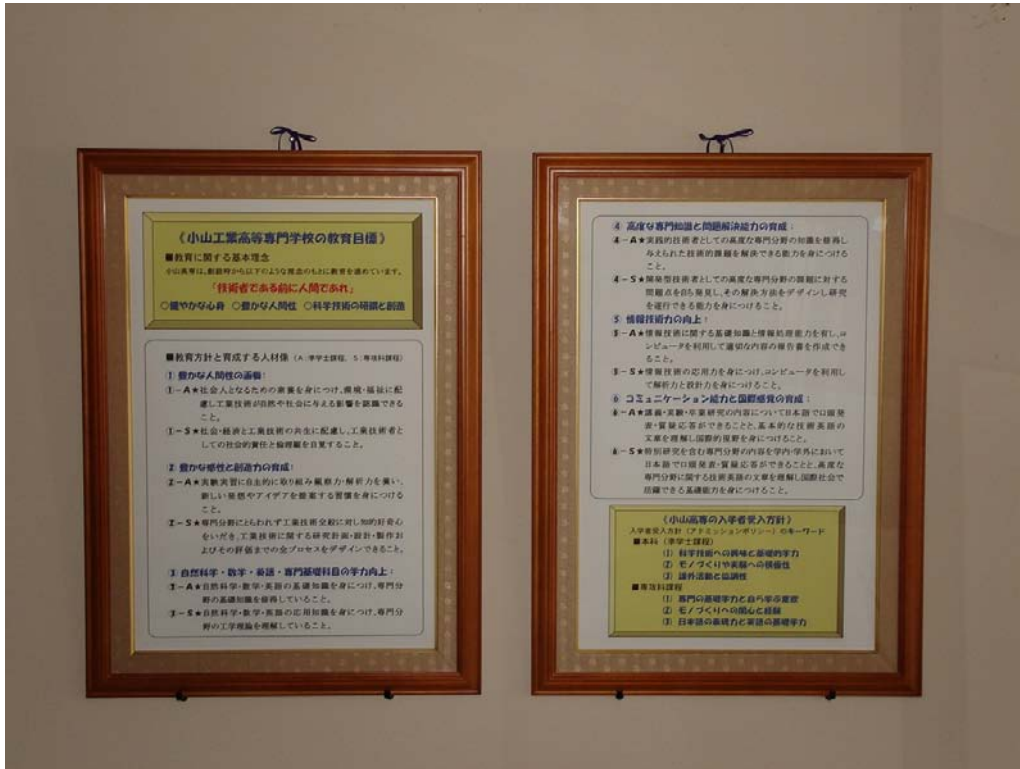 《小山工業高等専門学校の教育目標》
■教育に関する基本理念
小山高専は、創設時から以下のような理念のもとに教育を進めています。
「技術者である前に人間であれ」
○健やかな心身 ○豊かな人間性 ○科学技術の研鑽と創造
■教育方針と育成する人材像（A：準学士課程，S：専攻科課程）
① 豊かな人間性の涵養：
①－A★社会人となるための素養を身につけ、環境・福祉に配
慮し工業技術が自然や社会に与える影響を認識できる
こと。
①－S★社会・経済と工業技術の共生に配慮し、工業技術者と
しての社会的責任と倫理観を自覚すること。
② 豊かな感性と創造力の育成：
②－A★実験実習に自主的に取り組み観察力・解析力を養い、
新しい発想やアイデアを提案する習慣を身につける
こと。
②－S★専門分野にとらわれず工業技術全般に対し知的好奇心
をいだき、工業技術に関する研究計画・設計・製作お
よびその評価までの全プロセスをデザインできること。
③ 自然科学・数学・英語・専門基礎科目の学力向上：
③－A★自然科学・数学・英語の基礎知識を身につけ、専門分
野の基礎知識を修得していること。
③－S★自然科学・数学・英語の応用知識を身につけ、専門分
野の工学理論を理解していること。
④ 高度な専門知識と問題解決能力の育成：
④－A★実践的技術者としての高度な専門分野の知識を修得し
与えられた技術的課題を解決できる能力を身につける
こと。
④－S★開発型技術者としての高度な専門分野の課題に対する
問題点を自ら発見し、その解決方法をデザインし研究
を遂行できる能力を身につけること。
⑤ 情報技術力の向上：
⑤－A★情報技術に関する基礎知識と情報処理能力を有し、コ
ンピュータを利用して適切な内容の報告書を作成でき
ること。
⑤－S★情報技術の応用力を身につけ、コンピュータを利用し
て解析力と設計力を身につけること。
⑥ コミュニケーション能力と国際感覚の育成：
⑥－A★講義・実験・卒業研究の内容について日本語で口頭発
表・質疑応答ができることと、基本的な技術英語の
文章を理解し国際的視野を身につけること。
⑥－S★特別研究を含む専門分野の内容を学内・学外において
日本語で口頭発表・質疑応答ができることと、高度な
専門分野に関する技術英語の文章を理解し国際社会で
活躍できる基礎能力を身につけること。
《小山高専の入学者受入方針》
入学者受入方針（アドミッションポリシー）のキーワード
■本科（準学士課程）
(1) 科学技術への興味と基礎的学力
(2) モノづくりや実験への積極性
(3) 課外活動と協調性
■専攻科課程
(1) 専門の基礎学力と自ら学ぶ意欲
(2) モノづくりへの関心と経験
(3) 日本語の表現力と英語の基礎学力